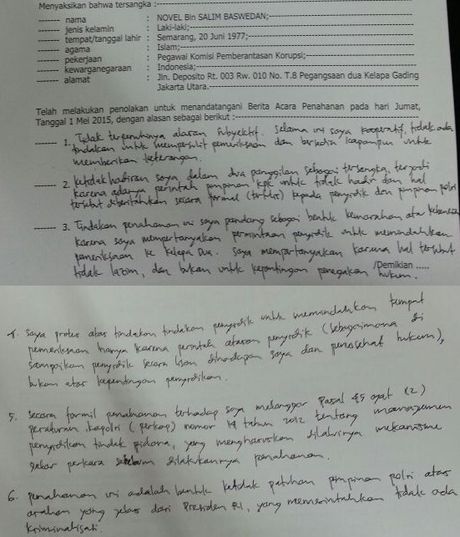 Menyaksikan bahwa tersangka :
------- nama : NOVEL Bin SALIM BASWEDAN;
------- jenis kelamin : Laki-laki;
------- tempat/tanggal lahir : Semarang, 20 Juni 1977;
------- agama : Islam;
------- pekerjaan : Pegawai Komisi Pemberantasan Korupsi;
------- kewarganegaraan : Indonesia;
------- alamat : Jln. Deposito Rt. 003 Rw. 010 No. T.8 Pegangsaan dua Kelapa Gading
Jakarta Utara.
Telah melakukan penolakan untuk menandatangani Berita Acara Penahanan pada hari Jumat,
Tanggal 1 Mei 2015, dengan alasan sebagai berikut :
------- 1. Tidak terpenuhinya alasan subyektif. Selama ini saya kooperatif, tidak ada
tindakan untuk mempersulit pemeriksaan dan bersedia kapanpun untuk
memberikan keterangan.
------- 2. Ketidakhadiran saya dalam dua panggilan sebagai tersangka, terjadi
karena adanya perintah pimpinan KPK untuk tidak hadir dan hal
tersebut diberitahukan secara formal (tertulis) kepada penyidik dan pimpinan polri
------- 3. Tindakan penahanan ini saya pandang sebagai bentuk kemarahan atau kebencian
karena saya mempertanyakan permintaan penyidik untuk memindahkan
pemeriksaan ke Kelapa Dua. Saya mempertanyakan karena hal tersebut
tidak lazim, dan bukan untuk kepentingan penegakan hukum.
/Demikian .....
4. Saya protes atas tindakan tindakan penyidik untuk memindahkan tempat
pemeriksaan hanya karena perintah atasan penyidik (sebagaimana di
sampaikan penyidik secara lisan dihadapan saya dan penasehat hukum),
bukan atas kepentingan penyidikan.
5. Secara formil penahanan terhadap saya melanggar Pasal 45 ayat (2)
peraturan kapolri (perkap) nomor 14 tahun 2012 tentang manajemen
penyidikan tindak pidana, yang mengharuskan dilaluinya mekanisme
gelar perkara sebelum dilakukannya penahanan.
6. penahanan ini adalah bentuk ketidak patuhan pimpinan polri atas
arahan yang jelas dari Presiden RI, yang memerintahkan tidak ada
kriminalisasi.